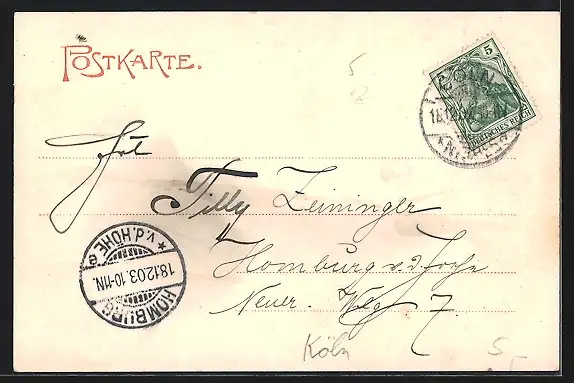 POSTKARTE.
5
5
CÖLN
DEUTSCHES REICH
Frl.
Tilly Zeininger
Homburg v. d. Höhe
Neuer Weg 7.
HOMBURG
18.12.03.10-11N.
* v.d.HÖHE
Köln
5,-